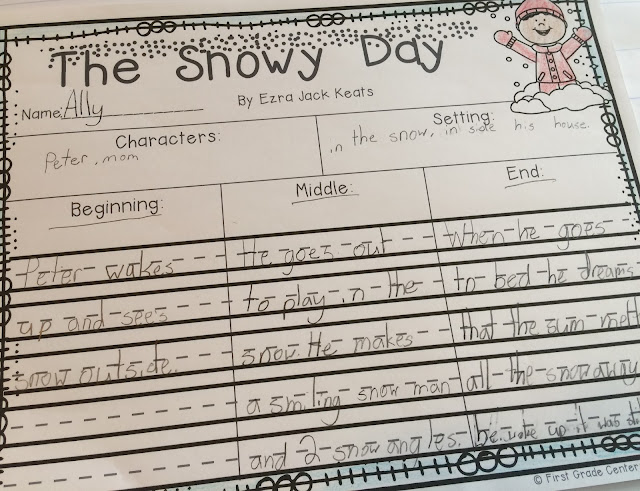 The Snowy Day
Name: Ally
By Ezra Jack Keats
Characters:
Peter, mom
Setting:
in the snow, in side his house.
Beginning:
Peter wakes
up and sees
snow outside.
Middle:
He goes out
to play in the
snow. He makes
a smiling snow man
and 2 snow angles.
End:
When he goes
to bed he dreams
that the sun melt
all the snow away
he woke up it was
© First Grade Center